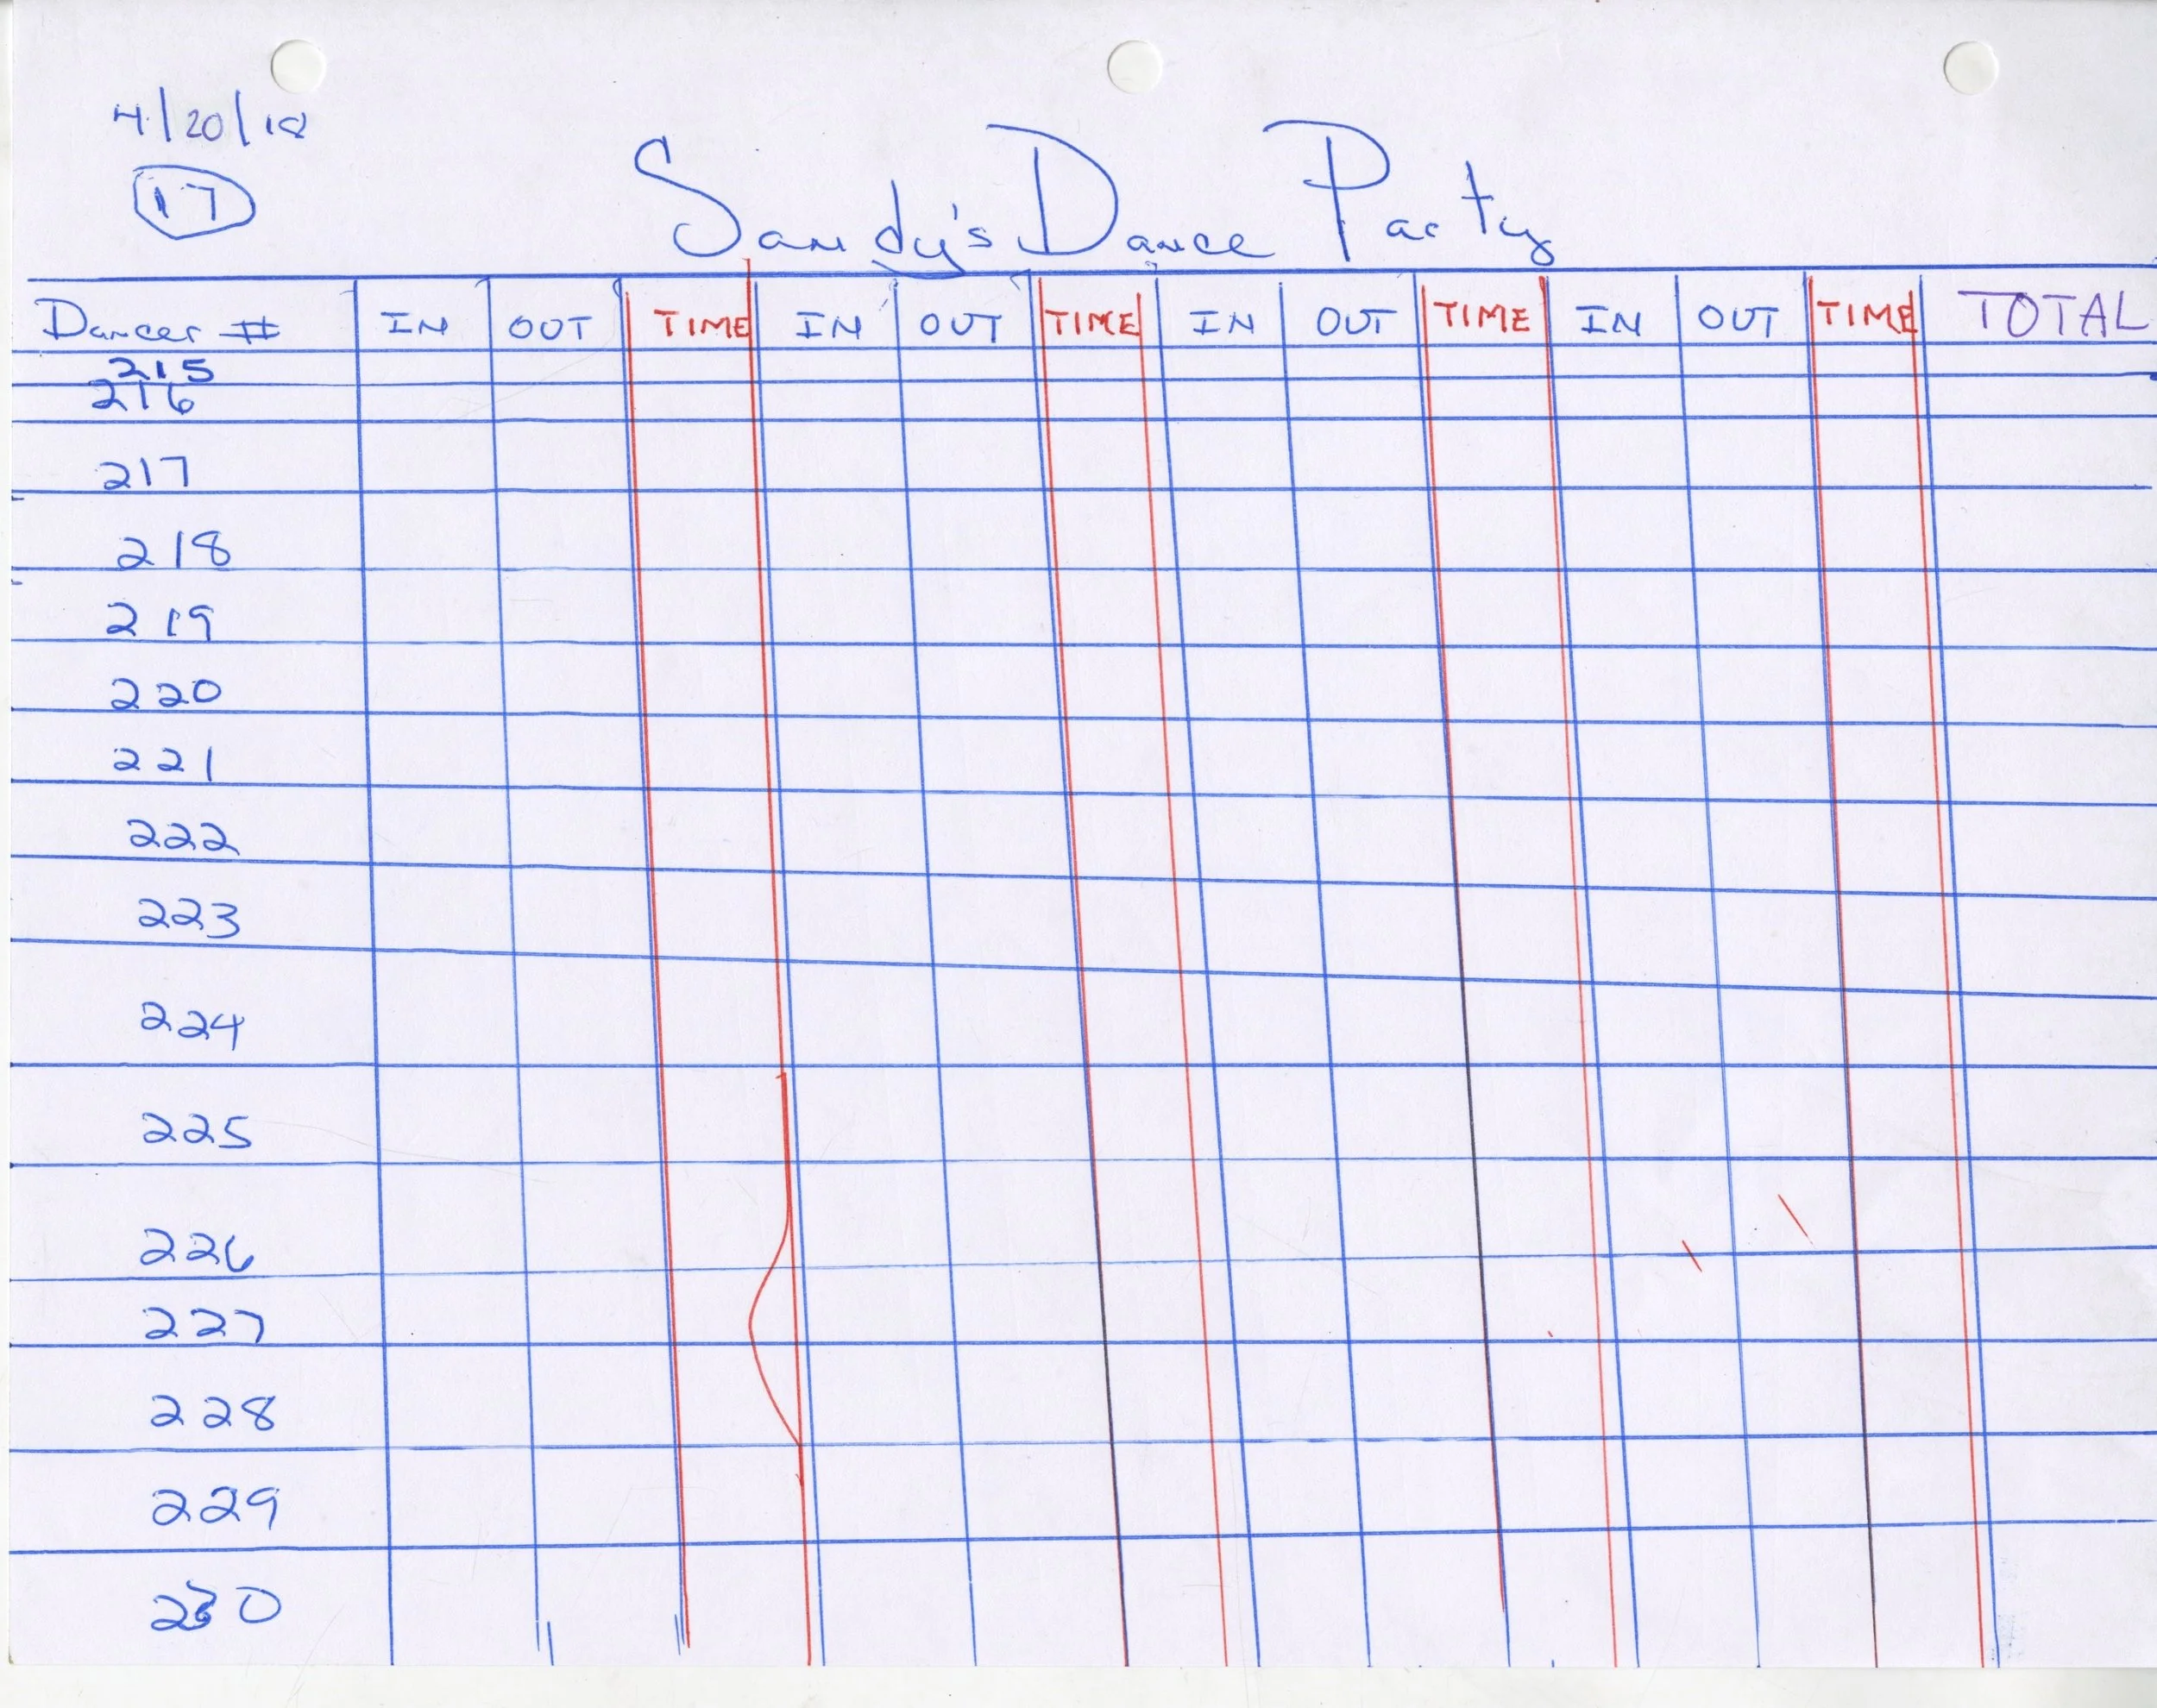 4/20/18
17
Sandy's Dance Party
Dancer # IN OUT TIME IN OUT TIME IN OUT TIME IN OUT TIME TOTAL
215
216
217
218
219
220
221
222
223
224
225
226
227
228
229
230